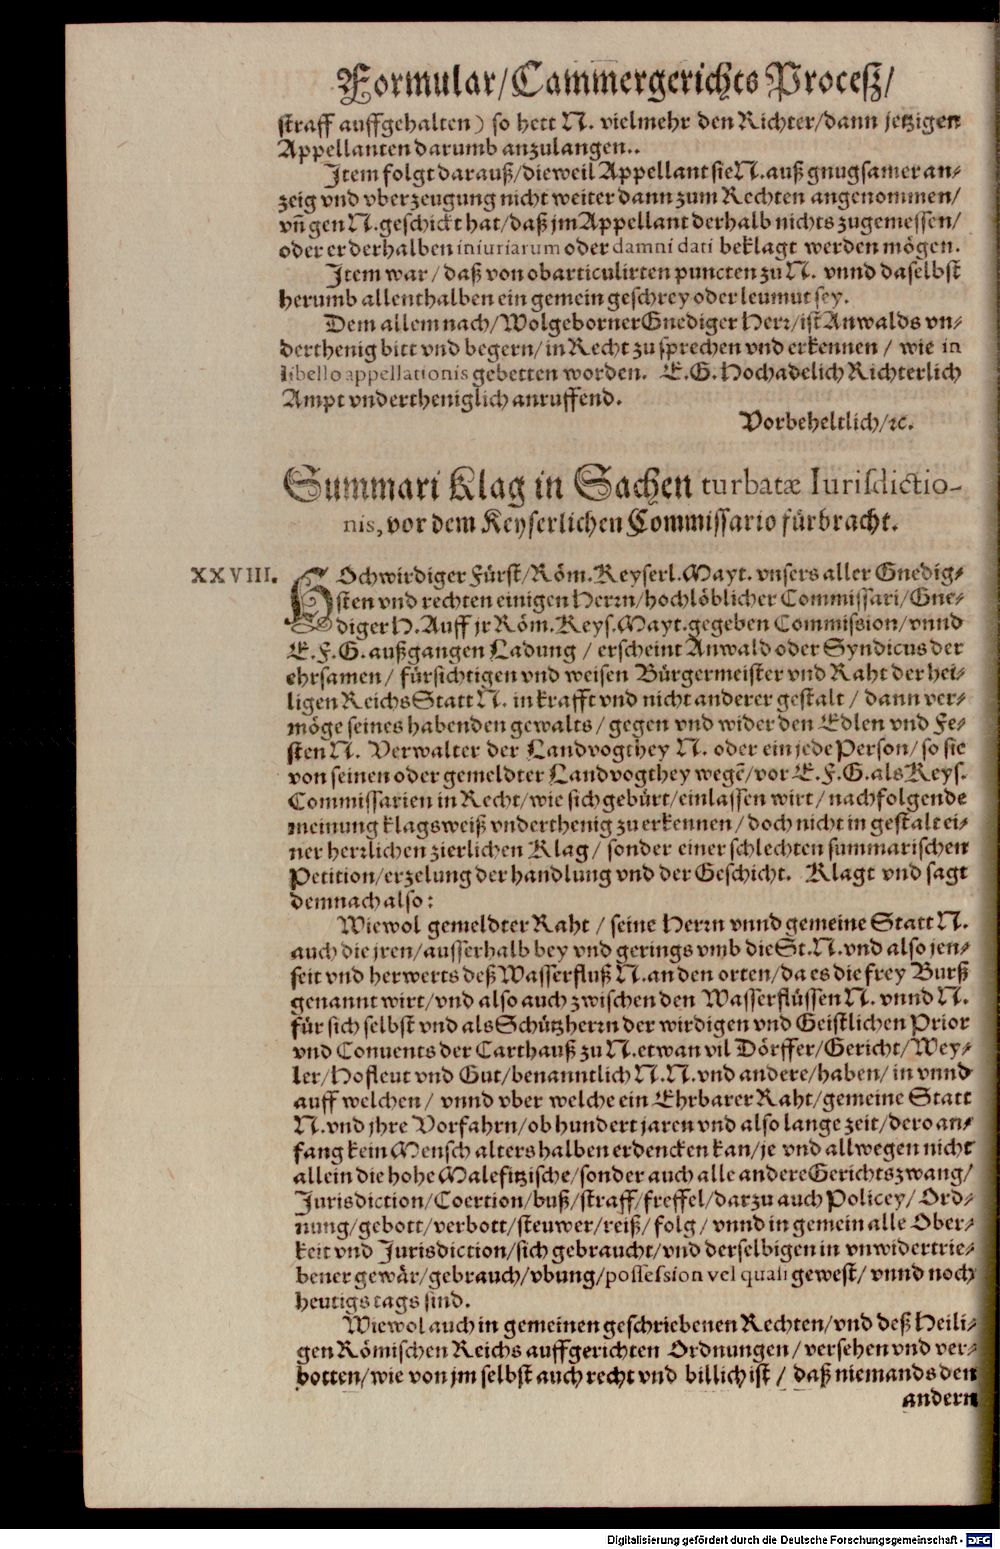 Formular/Cam̅ergerichts Proceß/
straff auffgehalten) so hett N. vielmehr den Richter/dann jetzigen
Appellanten darumb anzulangen..
Item folgt darauß/dieweil Appellant sie N. auß gnugsamer an-
zeig vnd vberzeugung nicht weiter dann zum Rechten angenommen/
vñ gen N. geschickt hat/daß jm Appellant derhalb nichts zugemessen/
oder er derhalben iniuriarum oder damni dati beklagt werden mögen.
Item war/daß von obarticulirten puncten zu N. vnnd daselbst
herumb allenthalben ein gemein geschrey oder leumut sey.
Dem allem nach/Wolgeborner Gnediger Herr/ist Anwalds vn-
derthenig bitt vnd begern/in Recht zu sprechen vnd erkennen/ wie in
libello appellationis gebetten worden. E.G. Hochadelich Richterlich
Ampt vndertheniglich anruffend.
Vorbeheltlich/ꝛc.
Summari Klag in Sachen turbatæ Iurisdictio-
nis, vor dem Keyserlichen Commissario fürbracht.
XXVIII.
HOchwirdiger Fürst/Röm. Keyserl. Mayt. vnsers aller Gnedig-
sten vnd rechten einigen Herrn/hochlöblicher Commissari/Gne-
diger H. Auff jr Röm. Keys. Mayt. gegeben Commission/vnnd
E.F.G. außgangen Ladung/ erscheint Anwald oder Syndicus der
ehrsamen/ fürsichtigen vnd weisen Bürgermeister vnd Raht der hei-
ligen Reichs Statt N. in krafft vnd nicht anderer gestalt/ dann ver-
möge seines habenden gewalts/ gegen vnd wider den Edlen vnd Fe-
sten N. Verwalter der Landvogthey N. oder ein jede Person/ so sie
von seinen oder gemeldter Landvogthey wegē/vor E.F.G. als Keys.
Commissarien in Recht/wie sich gebürt/einlassen wirt/ nachfolgende
meinung klagsweiß vnderthenig zu erkennen/ doch nicht in gestalt ei-
ner herrlichen zierlichen Klag/ sonder einer schlechten summarischen
Petition/erzelung der handlung vnd der Geschicht. Klagt vnd sagt
demnach also:
Wiewol gemeldter Raht/ seine Herrn vnnd gemeine Statt N.
auch die jren/ausserhalb bey vnd gerings vmb die St. N. vnd also jen-
seit vnd herwerts deß Wasserfluß N. an den orten/da es die frey Burß
genannt wirt/vnd also auch zwischen den Wasserflüssen N. vnnd N.
für sich selbst vnd als Schützherrn der wirdigen vnd Geistlichen Prior
vnd Conuents der Carthauß zu N. etwan vil Dörffer/Gericht/Wey-
ler/Hofleut vnd Gut/benanntlich N. N. vnd andere/haben/ in vnnd
auff welchen/ vnnd vber welche ein Ehrbarer Raht/gemeine Statt
N. vnd jhre Vorfahrn/ob hundert jaren vnd also lange zeit/dero an-
fang kein Mensch alters halben erdencken kan/je vnd allwegen nicht
allein die hohe Malefitzische/sonder auch alle andere Gerichtszwang/
Jurisdiction/Coertion/buß/straff/freffel/darzu auch Policey/ Ord-
nung/gebott/verbott/steuwer/reiß/ folg/ vnnd in gemein alle Ober-
keit vnd Jurisdiction/sich gebraucht/vnd derselbigen in vnwidertrie-
bener gewär/gebrauch/vbung/possession vel quasi gewest/ vnnd noch
heutigs tags sind.
Wiewol auch in gemeinen geschriebenen Rechten/vnd deß Heili-
gen Römischen Reichs auffgerichten Ordnungen/ versehen vnd ver-
botten/wie von jm selbst auch recht vnd billich ist/ daß niemands den
andern
Digitalisierung gefördert durch die Deutsche Forschungsgemeinschaft - DFG